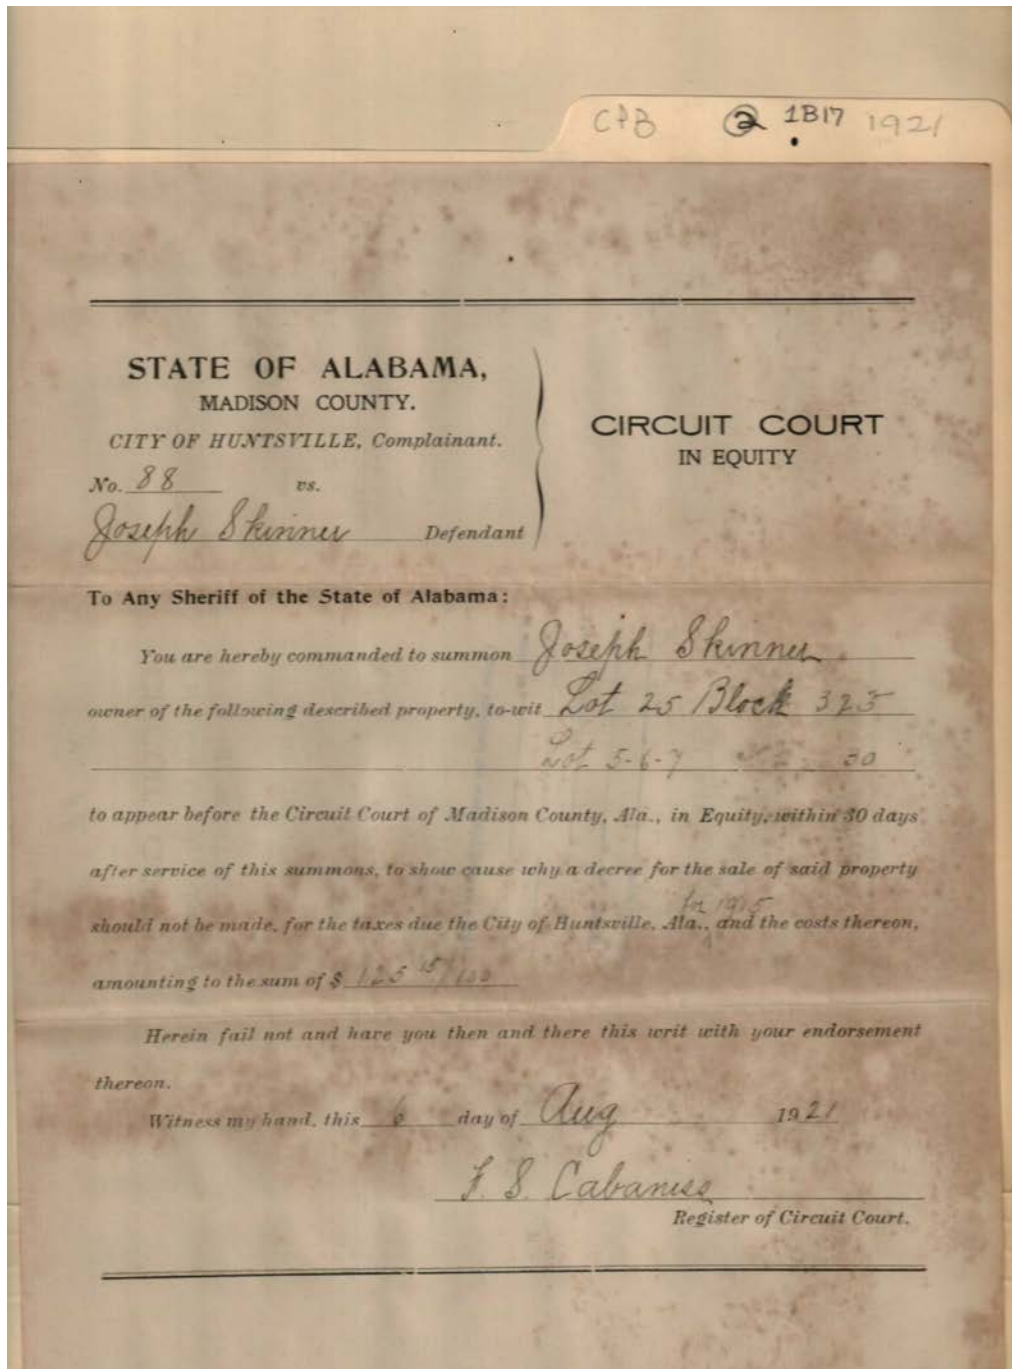 CPB ② 1B17 1921
STATE OF ALABAMA,
MADISON COUNTY.
CITY OF HUNTSVILLE, Complainant.
No. 88 vs.
Joseph Skinner Defendant
CIRCUIT COURT
IN EQUITY
To Any Sheriff of the State of Alabama:
You are hereby commanded to summon Joseph Skinner
owner of the following described property, to-wit Lot 25 Block 325
Lot 5-6-7 30
to appear before the Circuit Court of Madison County, Ala., in Equity, within 30 days
after service of this summons, to show cause why a decree for the sale of said property
for 1915
should not be made, for the taxes due the City of Huntsville, Ala., and the costs thereon,
amounting to the sum of $ 125 15/100
Herein fail not and have you then and there this writ with your endorsement
thereon.
Witness my hand, this 6 day of Aug 1921
F. S. Cabaniss
Register of Circuit Court.